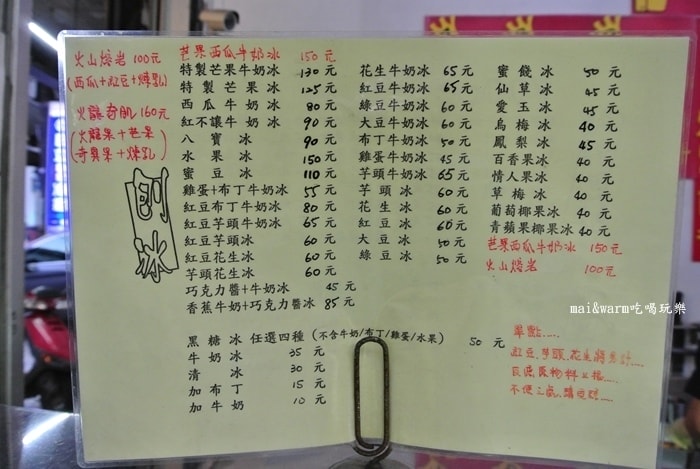 火山熔岩 100元
(西瓜+紅豆+煉乳)
火龍奇肌 160元
(火龍果+芒果
奇異果+煉乳)
刨冰
芒果西瓜牛奶冰 150元
特製芒果牛奶冰 130元
特製芒果冰 125元
西瓜牛奶冰 80元
紅不讓牛奶冰 90元
八寶冰 90元
水果冰 150元
蜜豆冰 110元
雞蛋+布丁牛奶冰 55元
紅豆布丁牛奶冰 80元
紅豆芋頭牛奶冰 65元
紅豆芋頭冰 60元
紅豆花生冰 60元
芋頭花生冰 60元
巧克力醬+牛奶冰 45元
香蕉牛奶+巧克力醬冰 85元
花生牛奶冰 65元
紅豆牛奶冰 65元
綠豆牛奶冰 60元
大豆牛奶冰 60元
布丁牛奶冰 50元
雞蛋牛奶冰 45元
芋頭牛奶冰 65元
芋頭冰 60元
花生冰 60元
紅豆冰 60元
大豆冰 50元
綠豆冰 50元
蜜餞冰 50元
仙草冰 45元
愛玉冰 45元
烏梅冰 40元
鳳梨冰 45元
百香果冰 40元
情人果冰 40元
草梅冰 40元
葡萄椰果冰 40元
青蘋果椰果冰 40元
芒果西瓜牛奶冰 150元
火山熔岩 100元
黑糖冰 任選四種(不含牛奶/布丁/雞蛋/水果) 50元
牛奶冰 35元
清冰 30元
加布丁 15元
加牛奶 10元
單點……
紅豆、芋頭、花生將多計……
不便之處，請見諒……
mai&warm吃喝玩樂